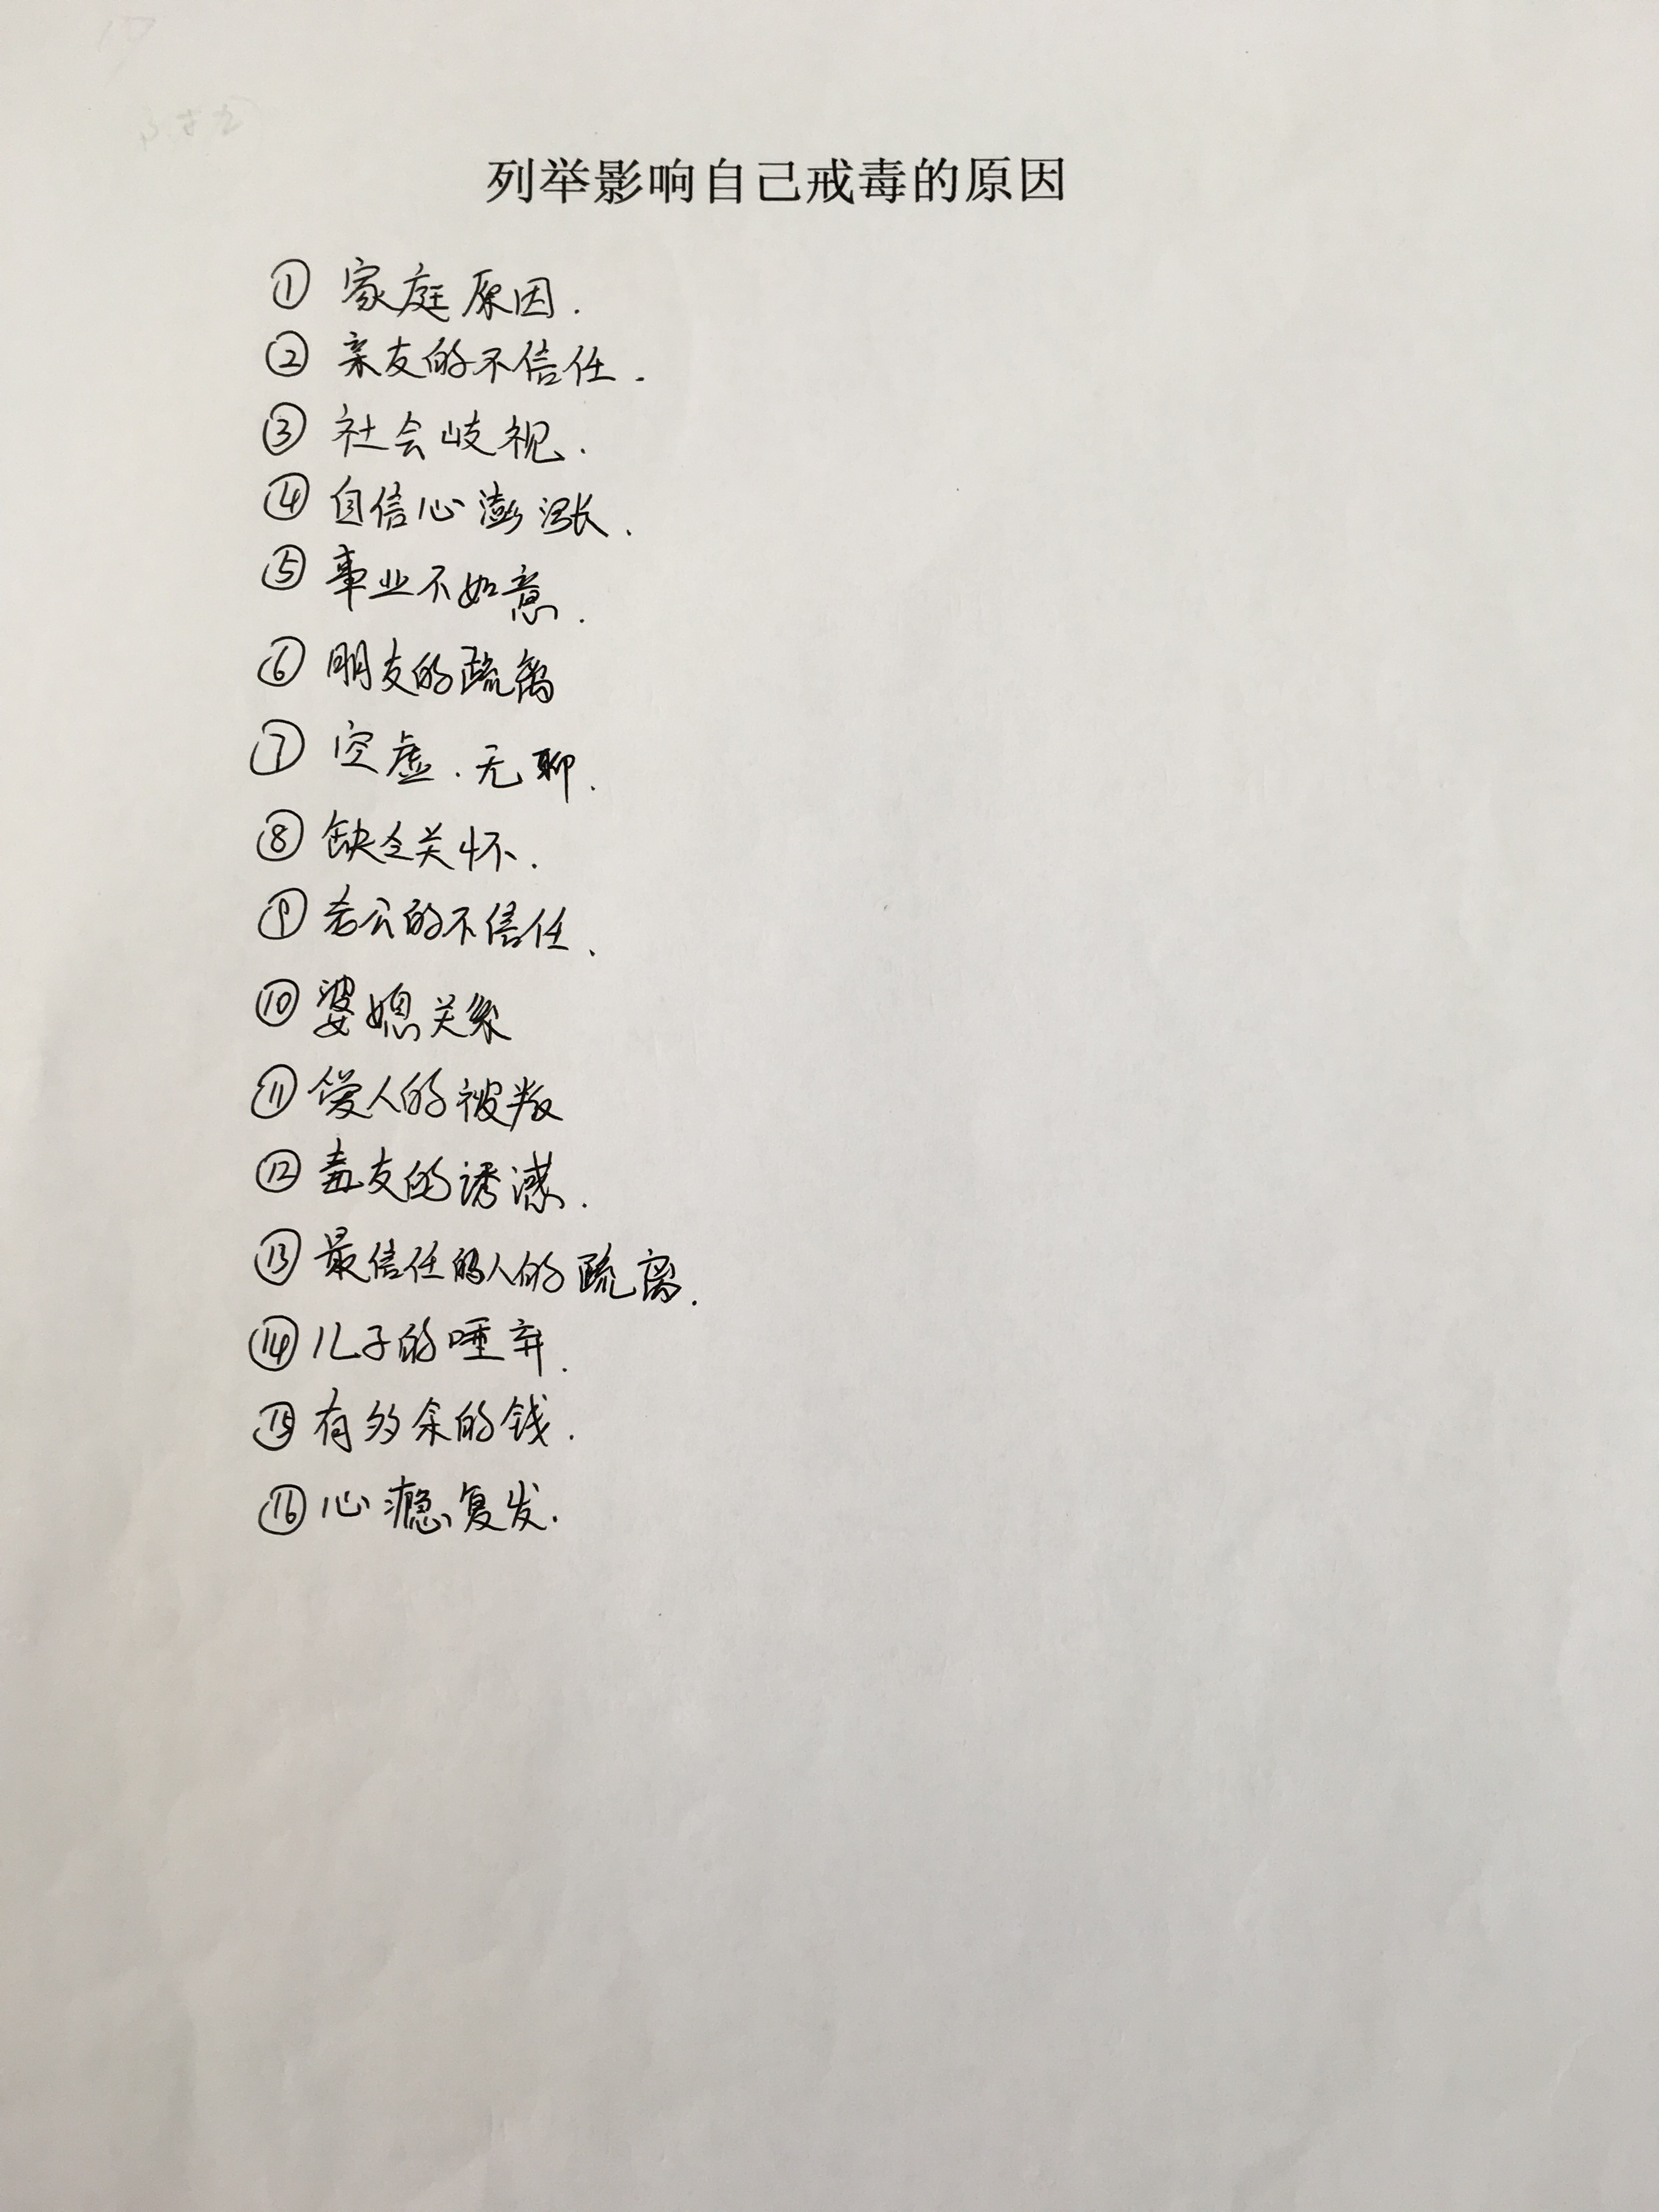 列举影响自己戒毒的原因
① 家庭原因.
② 亲友的不信任.
③ 社会岐视.
④ 自信心澎涨.
⑤ 事业不如意.
⑥ 朋友的疏离
⑦ 空虚.无聊.
⑧ 缺乏关怀.
⑨ 老公的不信任.
⑩ 婆媳关系
⑪ 爱人的被叛
⑫ 毒友的诱惑.
⑬ 最信任的人的疏离.
⑭ 儿子的唾弃.
⑮ 有多余的钱.
⑯ 心瘾复发.